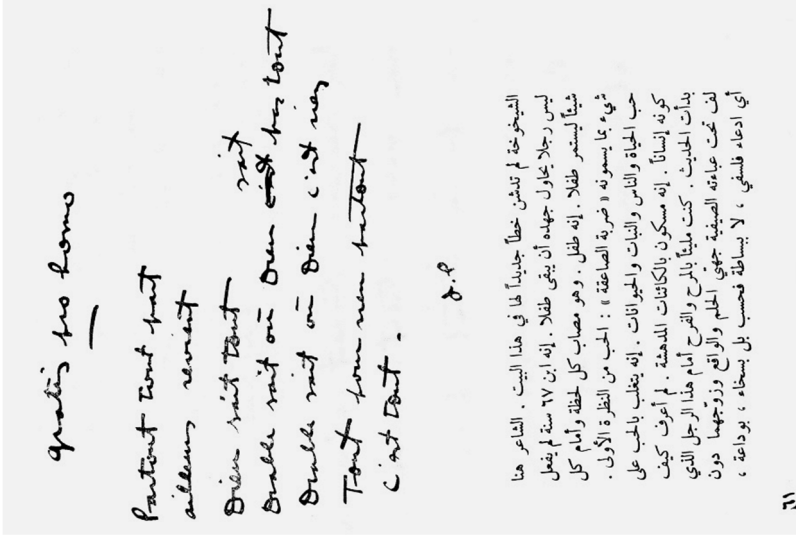 gratis pro homo
Partout tout part
ailleurs revient
Dieu sait tout
Diable sait où Dieu sait pas tout
Diable sait où Dieu c'est rien
Tout pour rien partout
c'est tout.
J.P
الشيخوخة لم تدشن خطاً جديداً لها في هذا البيت . الشاعر هنا
ليس رجلا يحاول جهده أن يبقى طفلا . إنه ابن ٦٧ سنة لم يفعل
شيئاً ليستمر طفلا . إنه طفل . وهو مصاب كل لحظة وأمام كل
شيء بما يسمونه « ضربة الصاعقة » : الحب من النظرة الأولى .
حب الحياة والناس والنبات والحيوانات . إنه يتغلب بالحب على
كونه إنساناً . إنه مسكون بالكائنات المدهشة . لم أعرف كيف
بدأت الحديث . كنت مليئاً بالمرح والفرح أمام هذا الرجل الذي
لف تحت عباءته الصيفية جهتي الحلم والواقع وزوّجهما دون
أي ادعاء فلسفي ، لا ببساطة فحسب بل بسخاء ، بوداعة ،